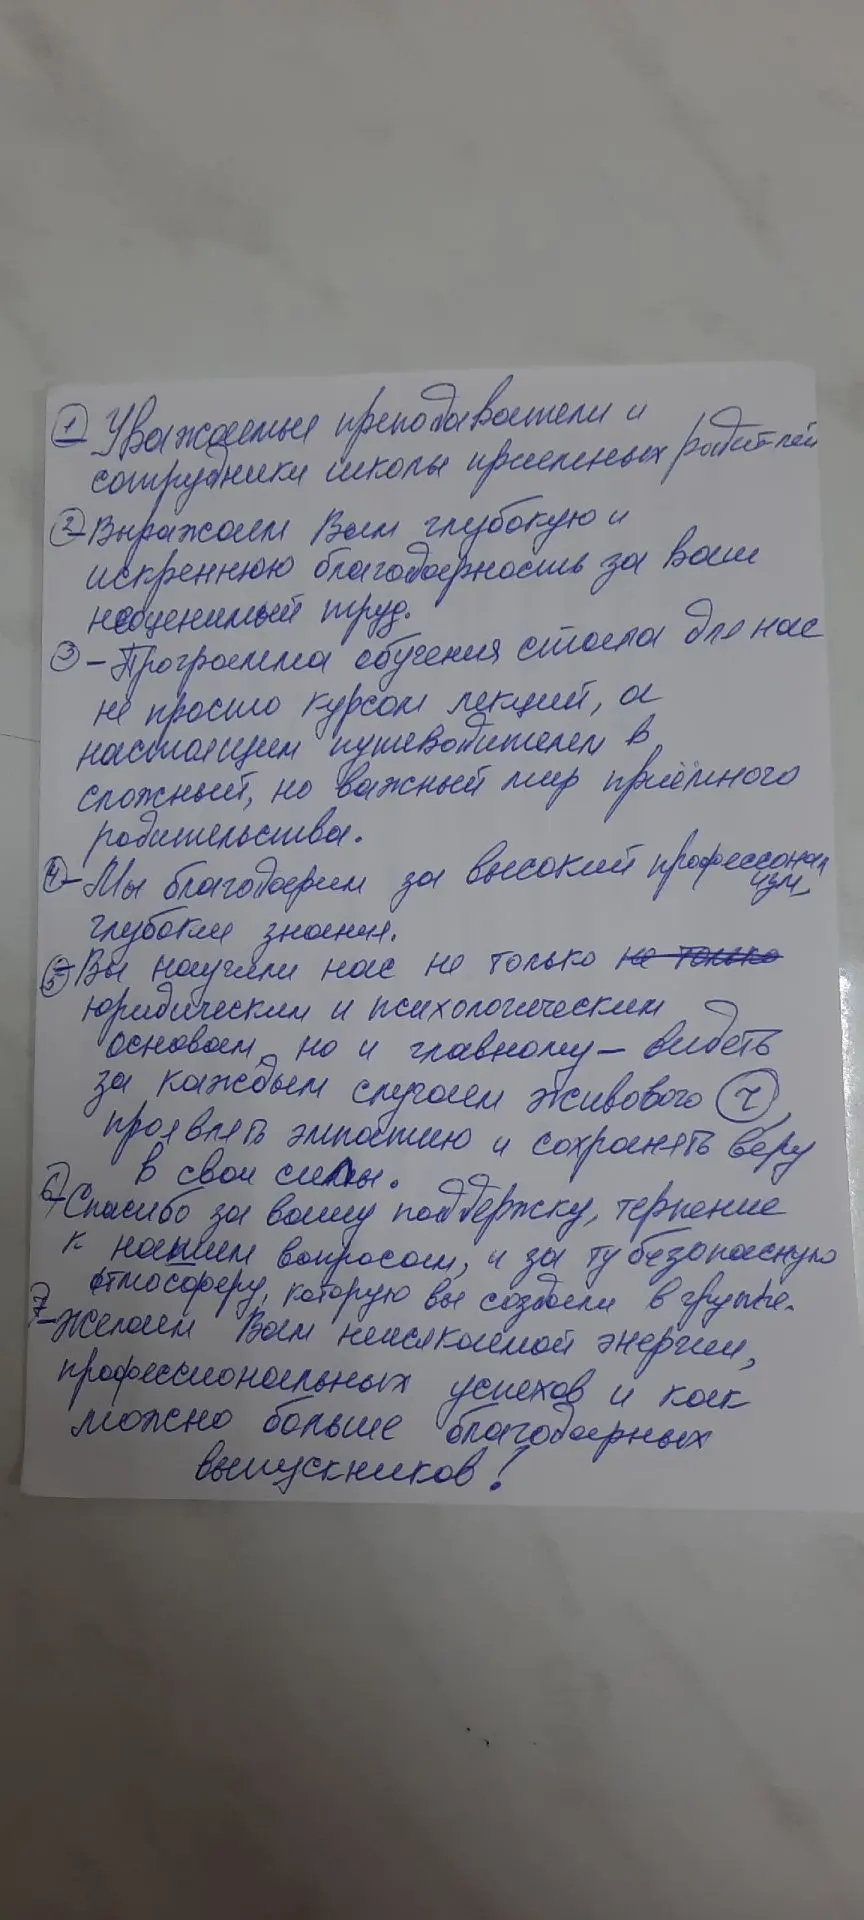 1 Уважаемые преподаватели и
сотрудники школы приемных родителей
2 - Выражаем Вам глубокую и
искреннюю благодарность за ваш
неоценимый труд.
3 - Программа обучения стала для нас
не просто курсом лекций, а
настоящим путеводителем в
сложный, но важный мир приёмного
родительства.
4 - Мы благодарим за высокий профессионал
изм,
глубокие знания.
5 - Вы научили нас не только не только
юридическим и психологическим
основам, но и главному - видеть
за каждым случаем живового ч,
проявлять эмпатию и сохранять веру
в свои силы.
6 - Спасибо за вашу поддержку, терпение
к нашим вопросам, и за ту безопасную
атмосферу, которую вы создали в группе.
7 - Желаем Вам неиссякаемой энергии,
профессиональных успехов и как
можно больше благодарных
выпускников!